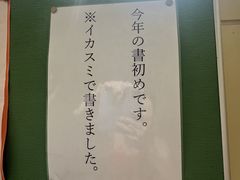 今年の書初めです。
※イカスミで書きました。